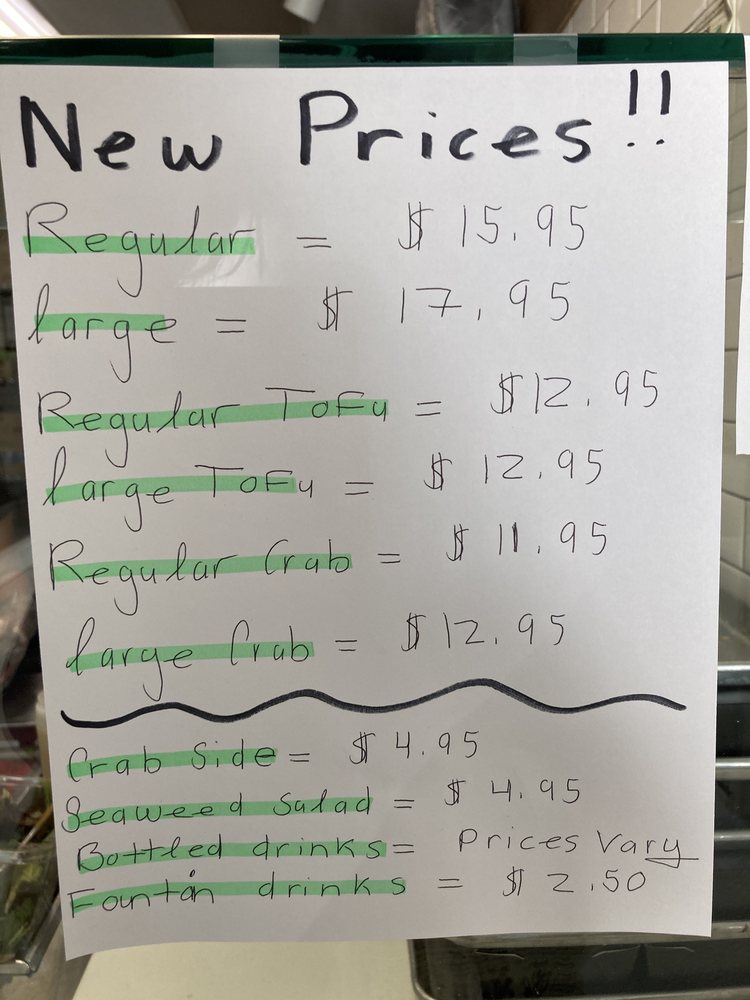 New Prices!!
Regular = $15.95
large = $17.95
Regular ToFu = $12.95
large ToFu = $12.95
Regular Crab = $11.95
large Crab = $12.95
Crab Side = $4.95
Seaweed Salad = $4.95
Bottled drinks = Prices Vary
Fountain drinks = $2.50